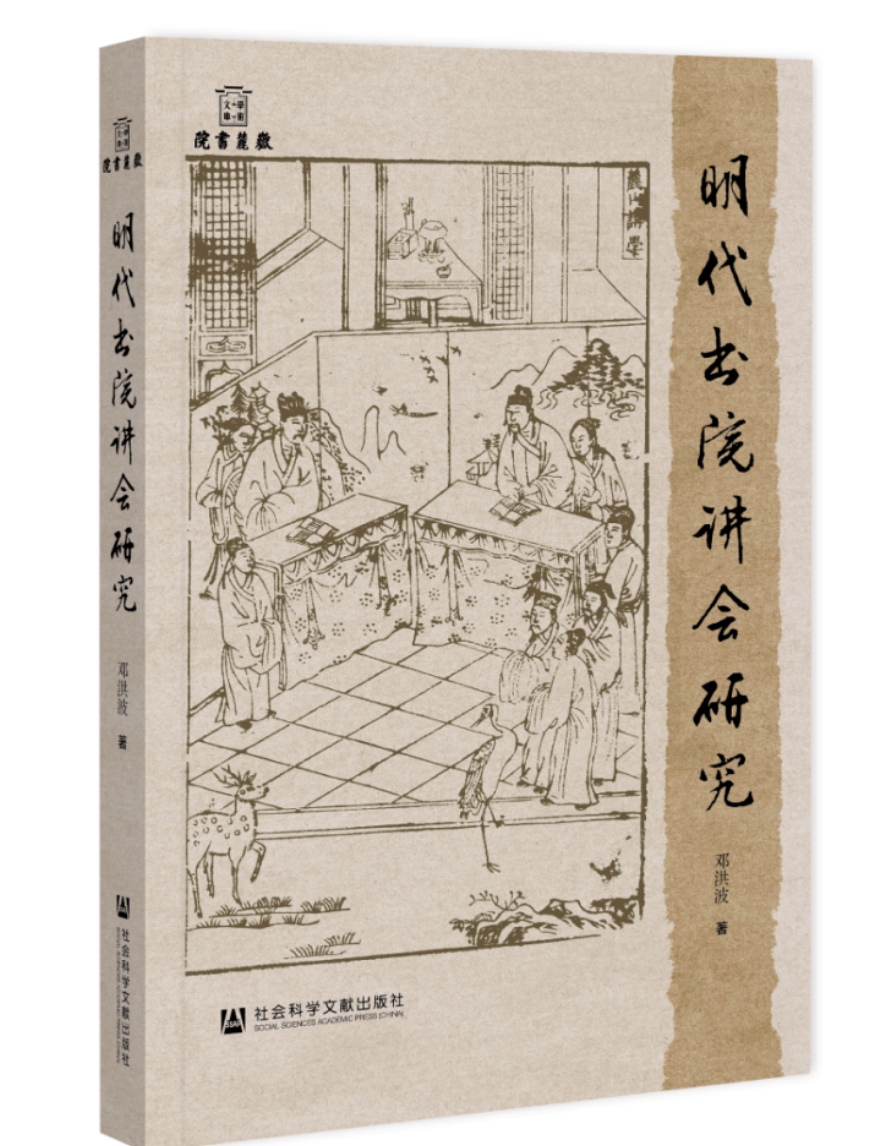 文學
車術
院書麓嶽
麓山講學
明代书院讲会研究
邓洪波 著
社会科学文献出版社
SOCIAL SCIENCES ACADEMIC PRESS (CHINA)
院書麓嶽
明代书院讲会研究
邓洪波 著
社会科学文献出版社
SOCIAL SCIENCES ACADEMIC PRESS (CHINA)